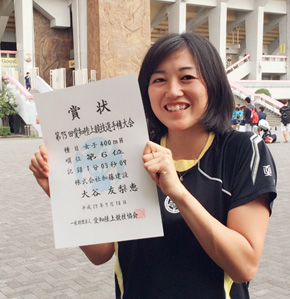 賞状
第75回愛知陸上競技選手権大会
種目 女子400mH
順位 第6位
記録 1分03秒09
株式会社加藤建設
大谷 友梨恵
平成27年7月18日
一般財団法人 愛知陸上競技協会